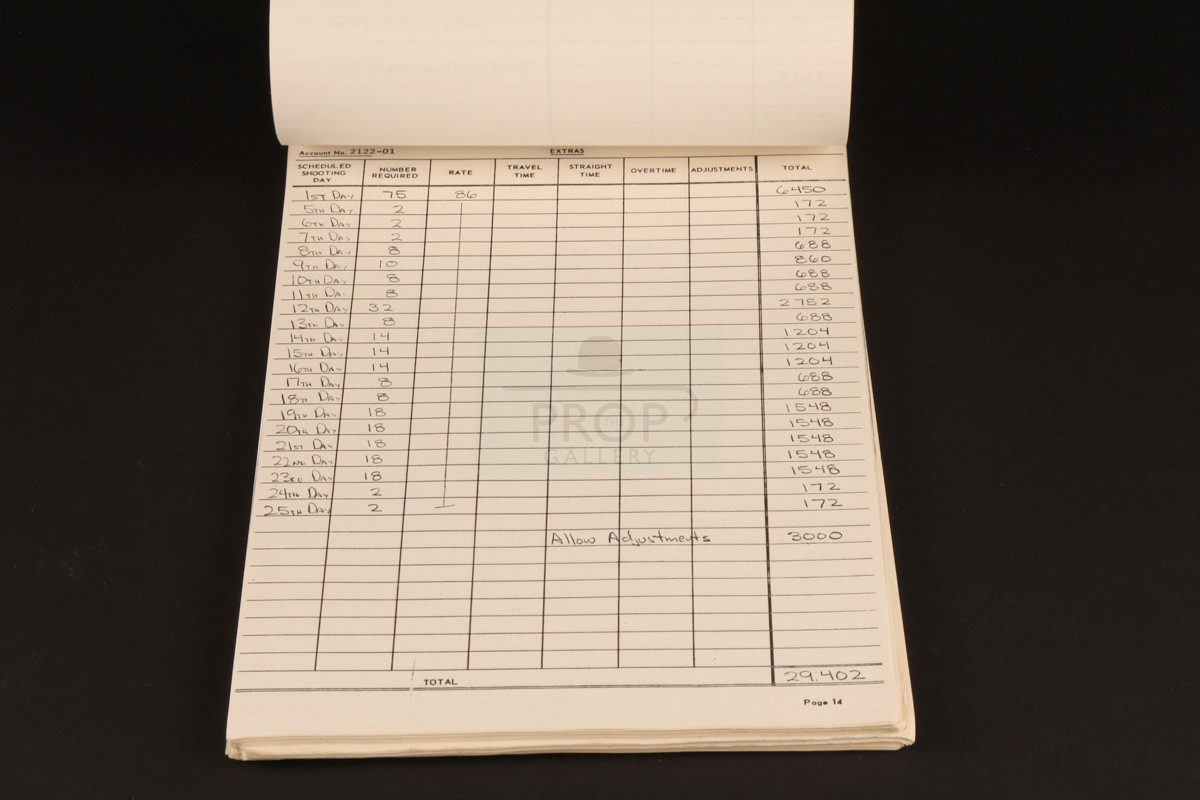 Account No. 2122-01 EXTRAS
SCHEDULED SHOOTING DAY NUMBER REQUIRED RATE TRAVEL TIME STRAIGHT TIME OVERTIME ADJUSTMENTS TOTAL
1ST DAY 75 86 6450
5TH DAY 2 172
6TH DAY 2 172
7TH DAY 2 172
8TH DAY 8 688
9TH DAY 10 860
10TH DAY 8 688
11TH DAY 8 688
12TH DAY 32 2752
13TH DAY 8 688
14TH DAY 14 1204
15TH DAY 14 1204
16TH DAY 14 1204
17TH DAY 8 688
18TH DAY 8 688
19TH DAY 18 1548
20TH DAY 18 1548
21ST DAY 18 1548
22ND DAY 18 1548
23RD DAY 18 1548
24TH DAY 2 172
25TH DAY 2 172
Allow Adjustments 3000
TOTAL 29.402
Page 14
THE PROP GALLERY